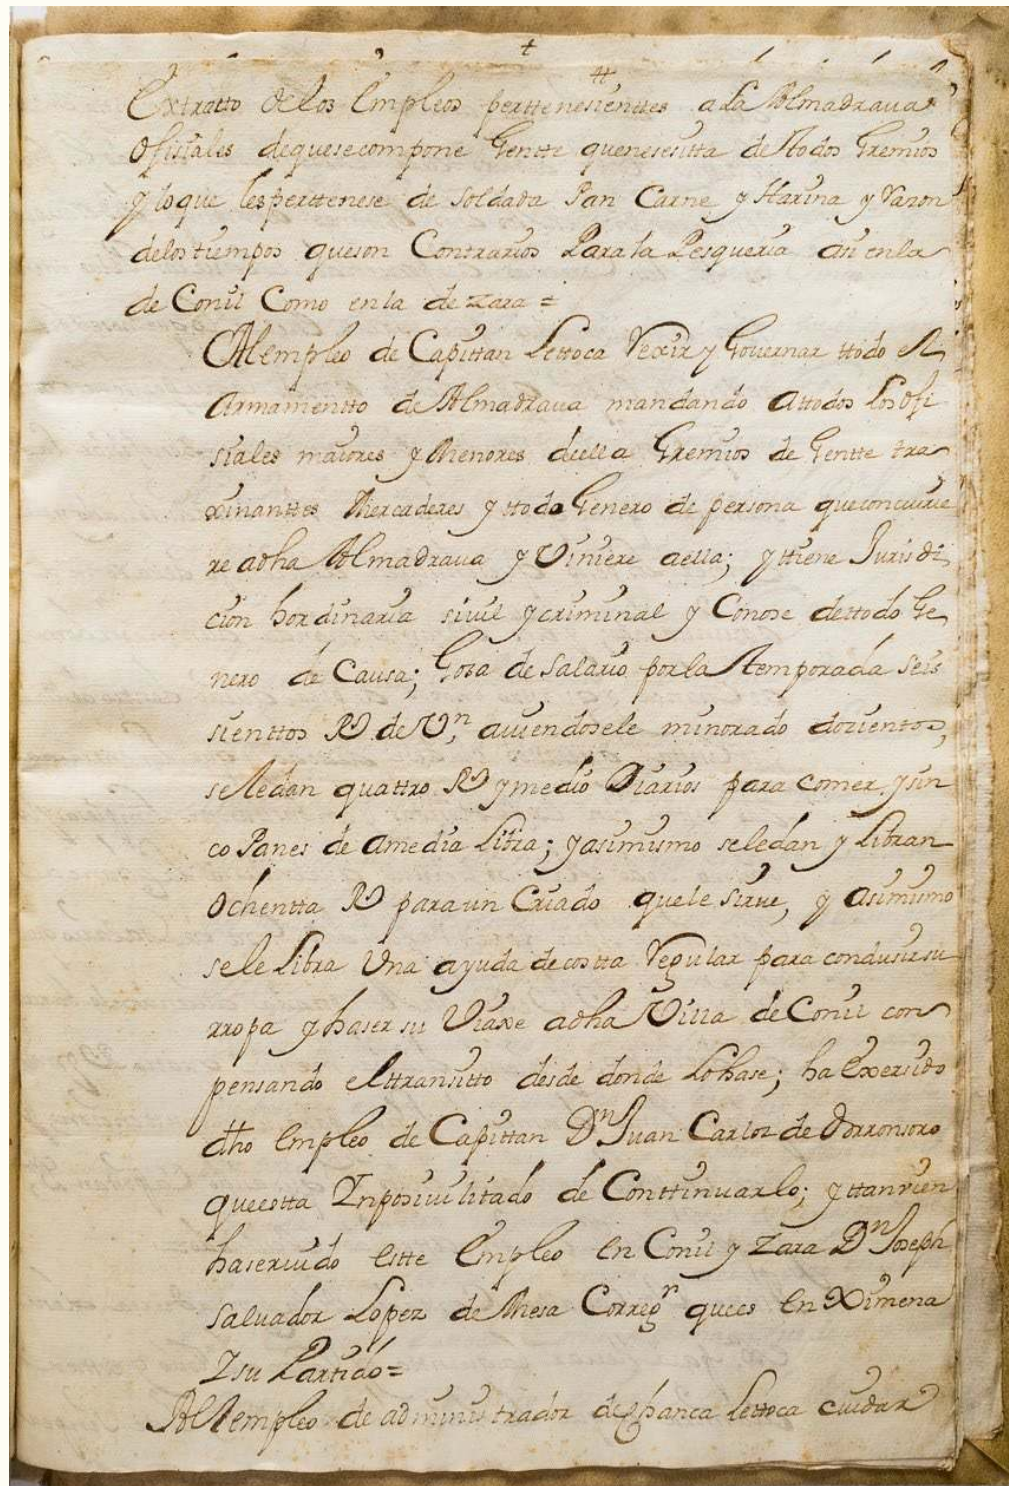 +
Extratto de los Empleos perttenesienttes a la Almadrava
Ofisiales dequesecompone Gentte quenesesitta de ttodos Gremios
y loque lesperttenese de Soldada Pan Carne y Harina y Razon
delos tiempos queson Contrarios Para la Pesqueria asi enla
de Conil Como en la de Zara =
Al empleo de Capittan Lettoca Rexir y Governar ttodo el
Armamentto de Almadrava mandando attodos Los Ofi
siales maiores y Menores de ella Gremios de Gentte tra
xinanttes Mercaderes y ttodo Genero de persona queconcurrie
re adha Almadrava y Viniere aella; y ttiene Jurisdi
cion hordinaria sivil y criminal y Conose dettodo Ge
nero de Causa; Gosa de Salario por la ttemporada seis
sienttos Rs de Vn, aviendosele minorado dozientos,
se le dan quattro Rs y medio Diarios para comer, y sin
co Panes de amedia Libra; y asimismo seledan y Libran
Ochentta Rs para un Criado quele sirve, y asimismo
sele Libra Una ayuda decostta Regular para condusir su
rropa y haser su Viaxe adha Villa de Conil con
pensando el ttransitto desde donde Lo hase; ha Exersido
dho Empleo de Capittan Dn Juan Carlos de Dorronsoro
queestta Inposivilitado de Conttinuarlo; y ttanvien
haservido estte Empleo en Conil y Zara Dn Joseph
Salvador Lopez de Mesa Corregr ques en Ximena
Y su Partido =
Al empleo de administrador de chanca Lettoca cuidar